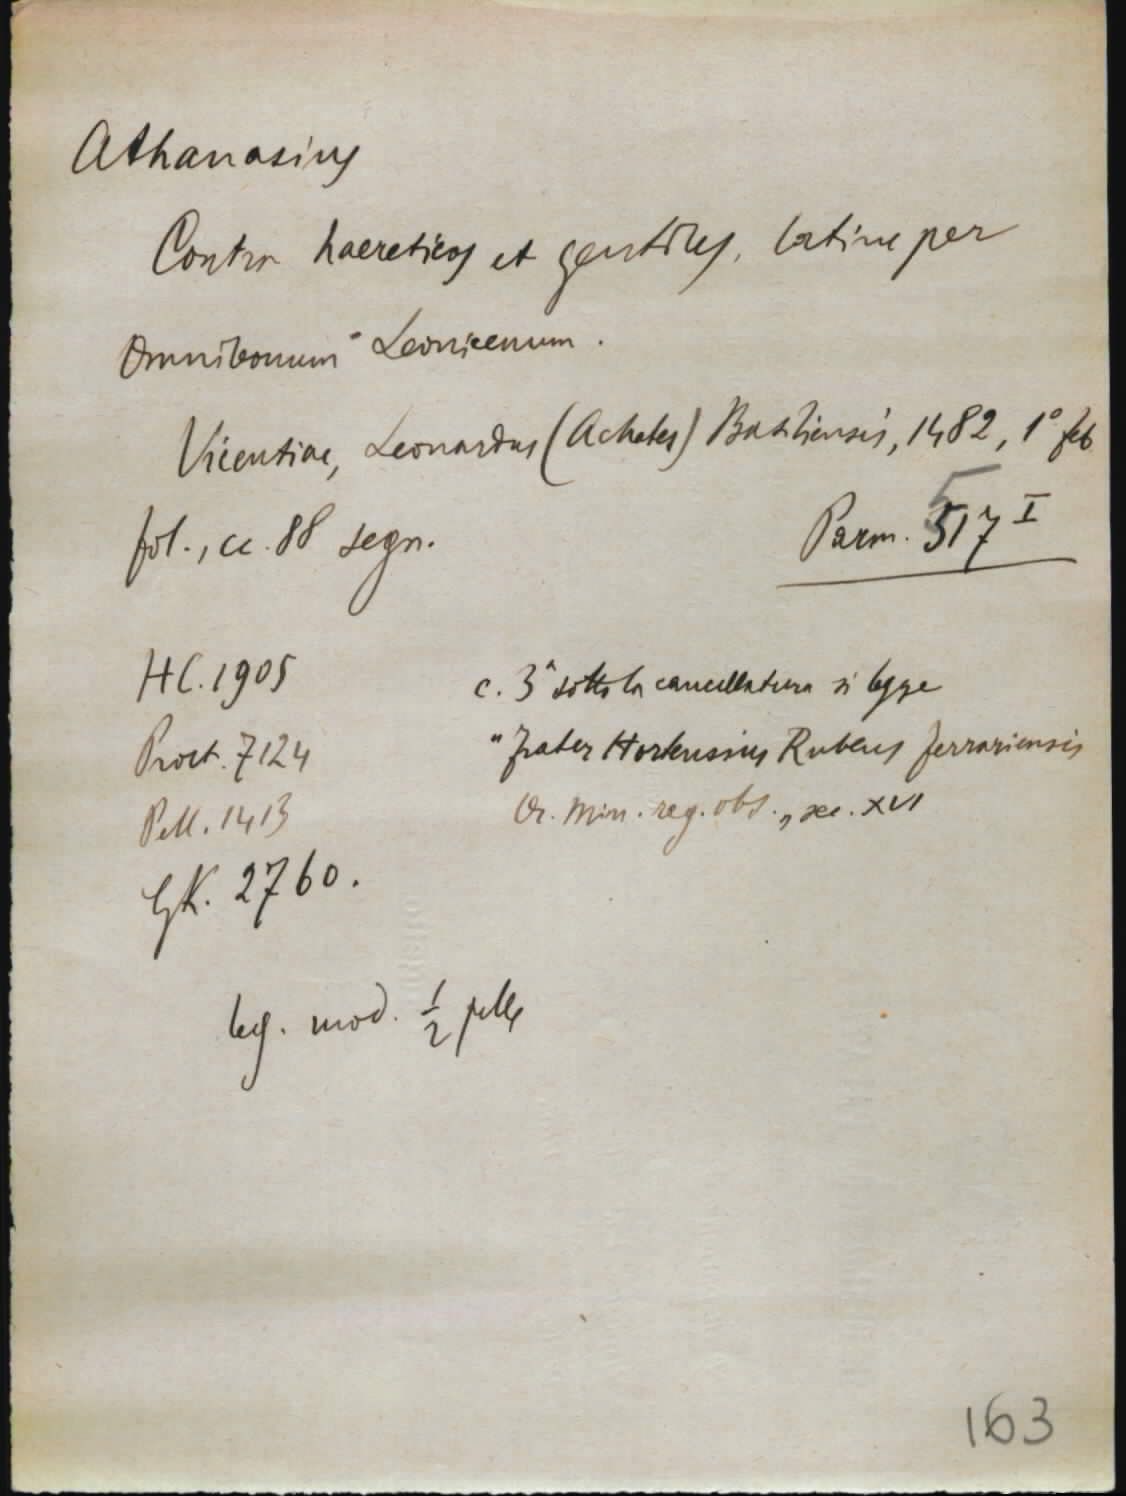 Athanasius
Contra haereticos et gentiles, latine per
Omnibonum Leonicenum.
Vicentiae, Leonardus (Achates) Basiliensis, 1482, 1° feb
fol., cc. 88 segn.
Parm. 517 I
HC. 1905
Proct. 7124
Pell. 1413
GK. 2760.
c. 3ª sotto la cancellatura si legge
"frater Hortensius Rubeus ferrariensis
Or. Min. reg. obs. „ sec. XVI
leg. mod. 1/2 pelle
163